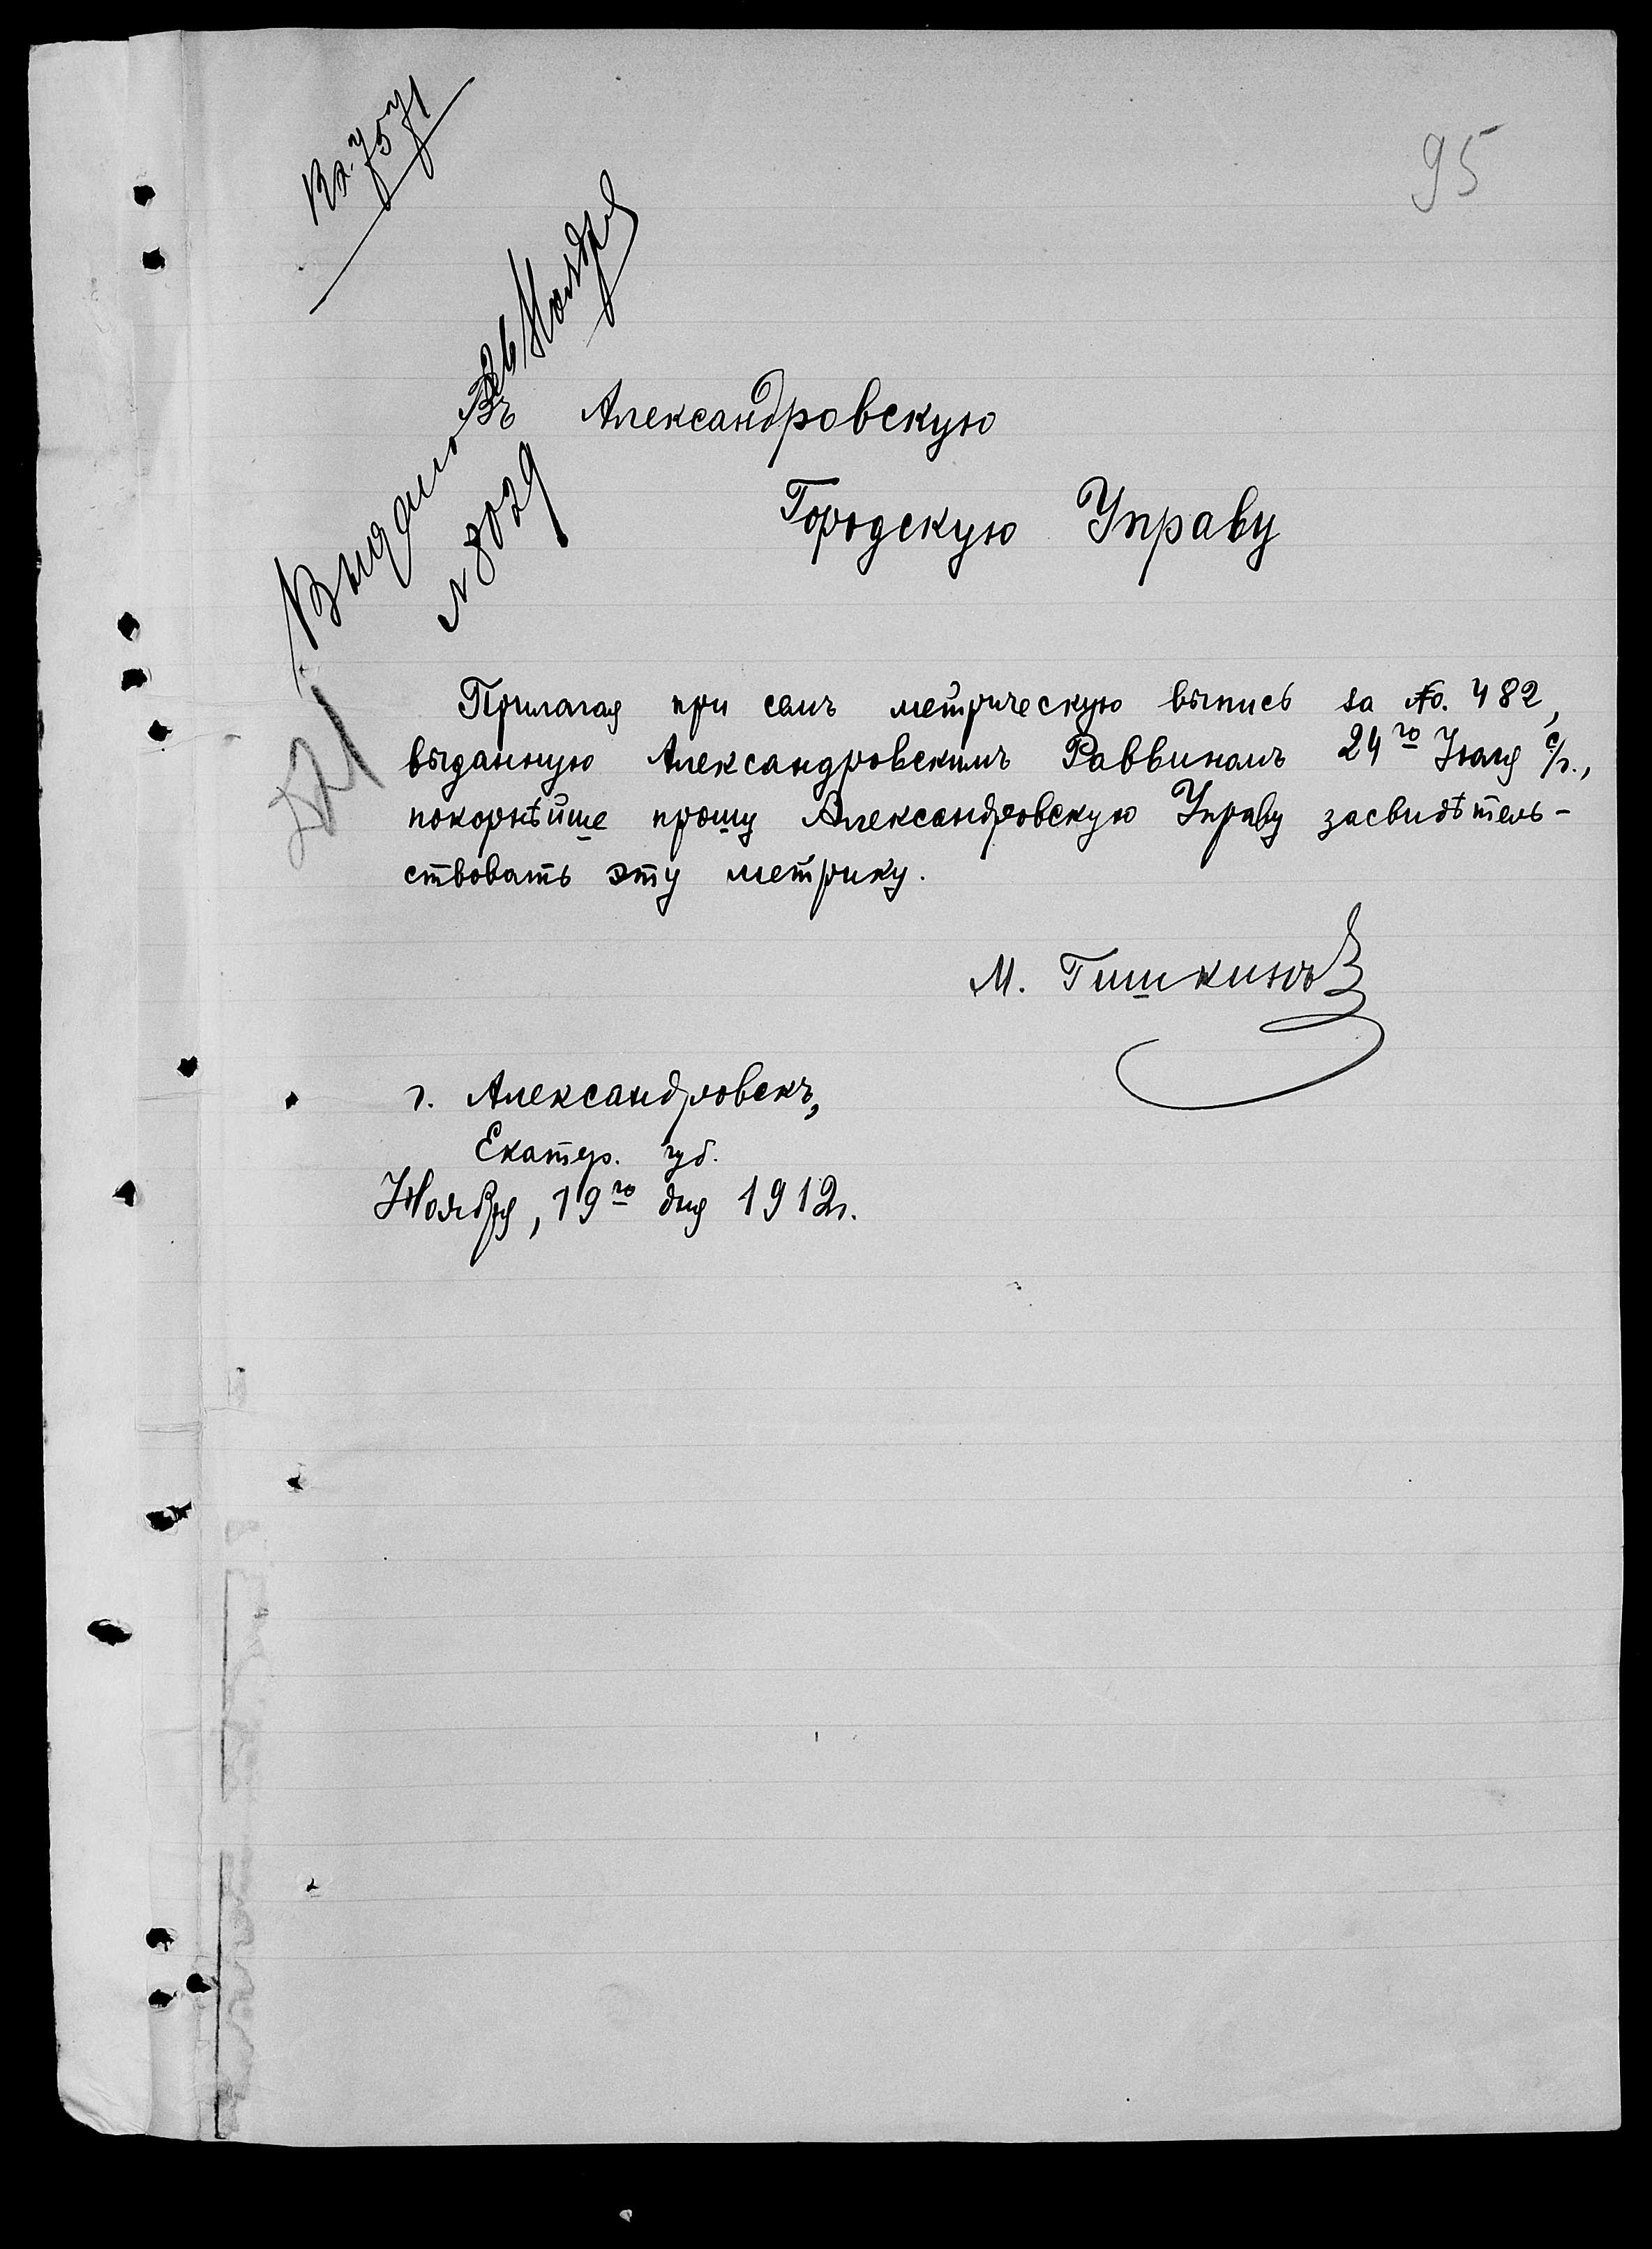 Вх. 7571
95
Выдано 26 Ноября
№ 8029
Въ Александровскую
Городскую Управу
Прилагая при семъ метрическую выпись за №. 482,
выданную Александровскимъ Раввиномъ 24го Іюля с/г.,
покорнѣйше прошу Александровскую Управу засвидѣтель-
ствовать эту метрику.
М. Гишкинъ
г. Александровскъ,
Екатер. губ.
Ноября, 19го дня 1912г.